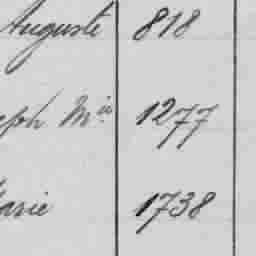 Auguste 818
eph Mie 1277
Marie 1738